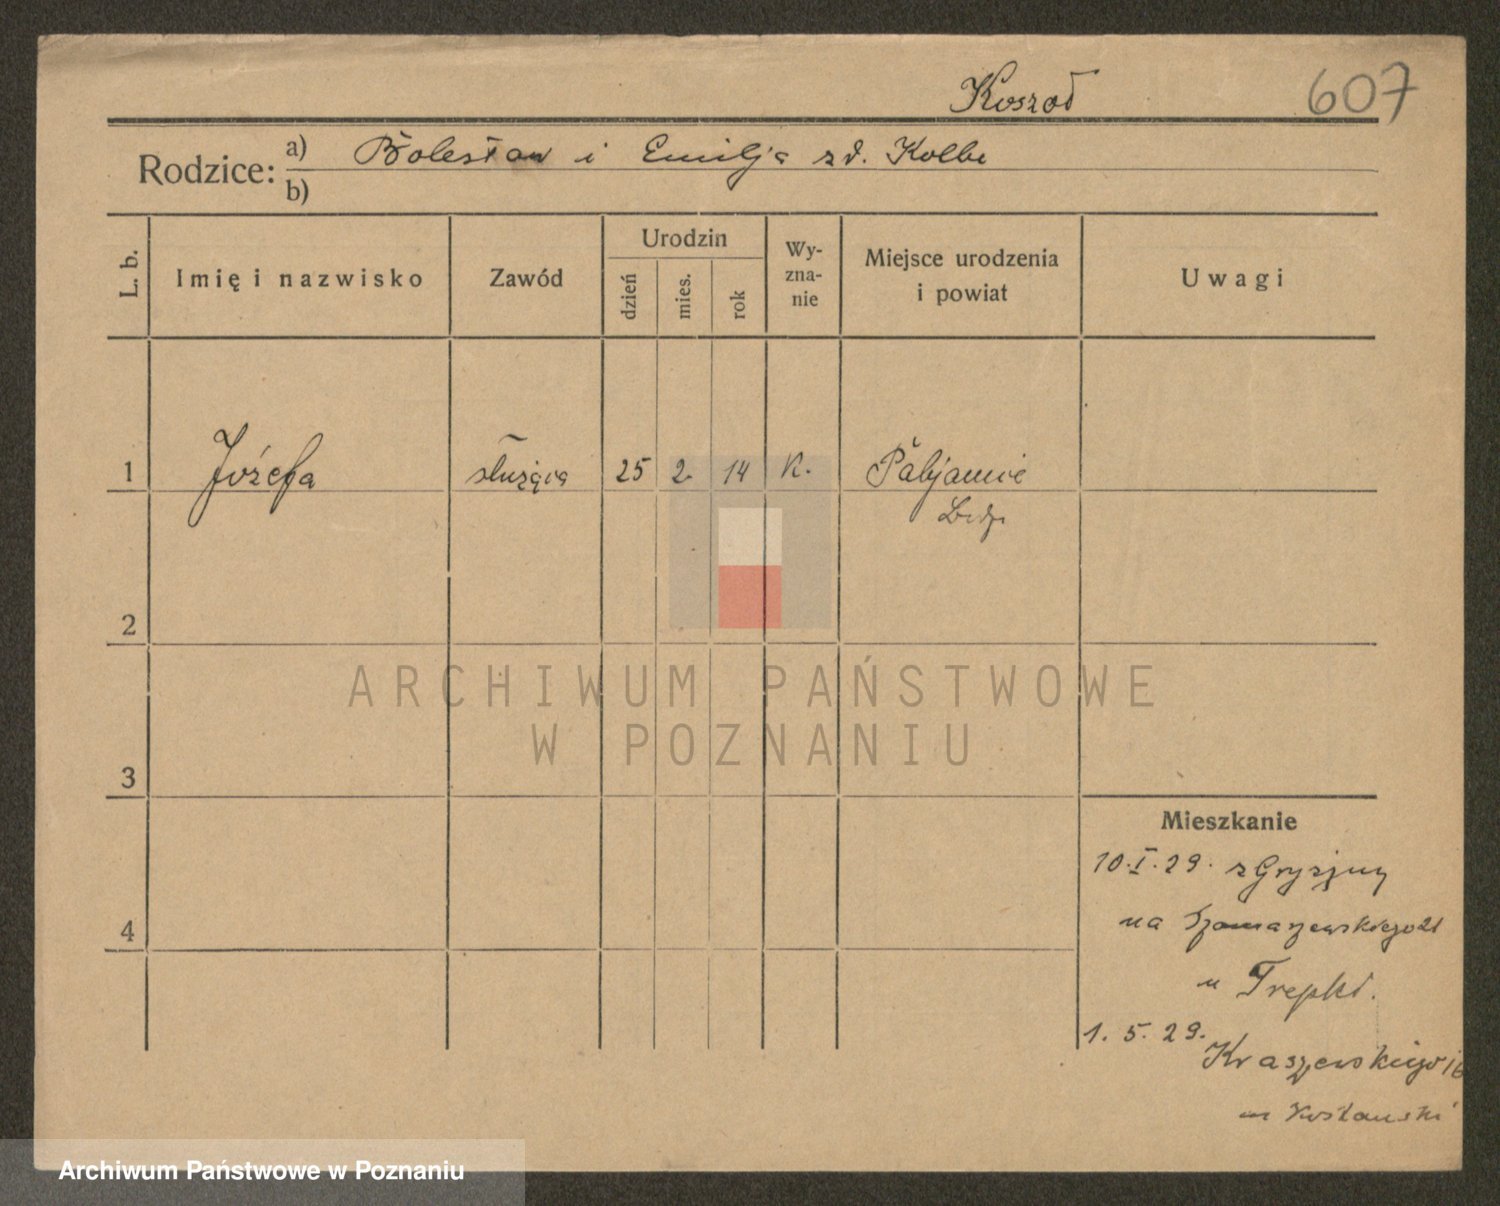 607
Rodzice:
a) Bolesław i Emilja zd. Kolbe
b)
L. b.
Imię i nazwisko
Zawód
Urodzin
dzień
mies.
rok
Wy-
zna-
nie
Miejsce urodzenia
i powiat
Uwagi
1 Józefa służąca 25 2. 14 K. Pabjanice
2
3
4
Mieszkanie
10.I.29. z Gryzjny
na Szamarzewskiego 21
u
1. 5. 29.
Kraszewskiego 16
ARCHIWUM PAŃSTWOWE
W POZNANIU
Archiwum Państwowe w Poznaniu